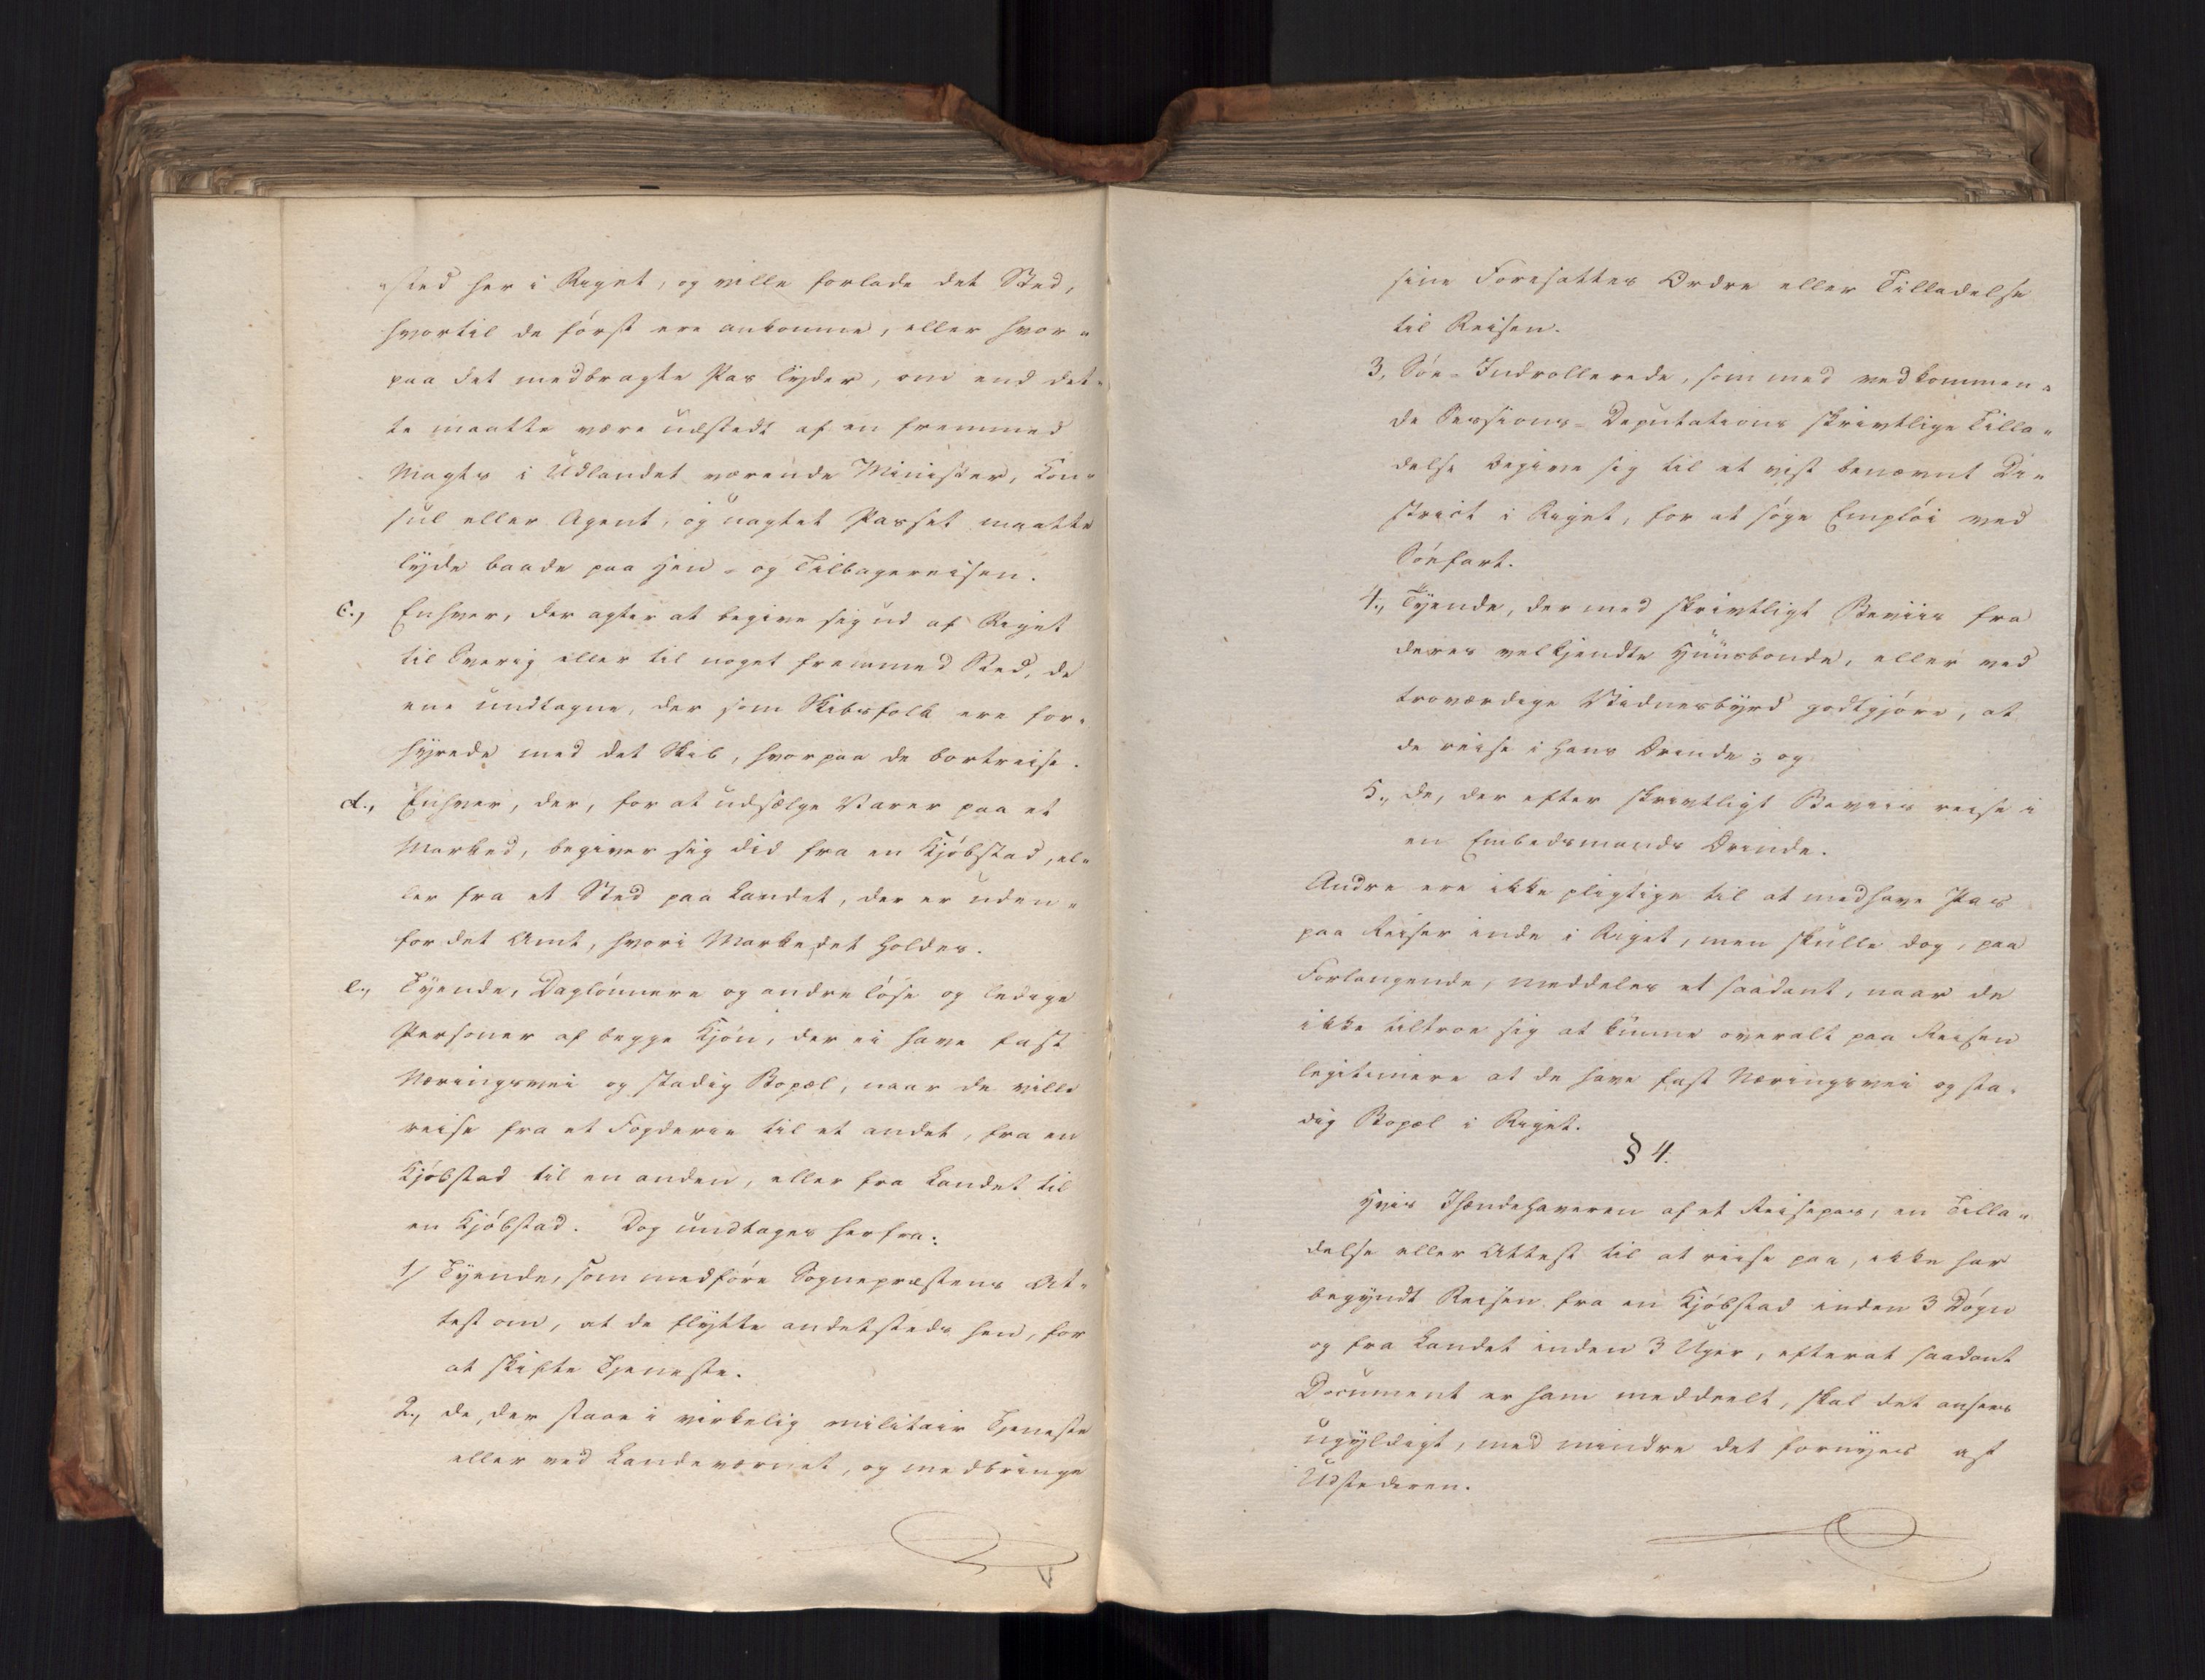 sted her i Riget, og ville forlade det Sted,
hvortil de först ere ankomne, eller hvor-
paa det medbragte Pas lyder, om end det-
te maatte være udstedt af en fremmed
Magts i Udlandet værende Minister, Con-
sul eller Agent, og uagtet Passet maatte
lyde baade paa Hen- og Tilbagereisen.
c., Enhver, der agter at begive sig ud af Riget
til Sverig eller til noget fremmed Sted, de
ene undtagne, der som Skibsfolk ere for-
hyrede med det Skib, hvorpaa de bortreise.
d., Enhver, der, for at udsælge Varer paa et
Marked, begiver sig did fra en Kjöbstad, el-
ler fra et Sted paa Landet, der er uden-
for det Amt, hvori Markedet holdes.
e., Tyende, Daglönnere og andre löse og ledige
Personer af begge Kjön, der ei have fast
Næringsvei og stadig Bopæl, naar de ville
reise fra et Fogderie til et andet, fra en
Kjöbstad til en anden, eller fra Landet til
en Kjöbstad. Dog undtages herfra:
1/ Tyende, som medföre Sognepræstens At-
test om, at de flytte andetsteds hen, for
at skifte Tjeneste.
2., de, der staae i virkelig militair Tjeneste
eller ved Landeværnet, og medbringe
sine Foresattes Ordre eller Tilladelse
til Reisen.
3, Söe-Indrollerede, som med vedkommen-
de Sessions-Deputations skrivtlige Tilla-
delse begive sig til et vist benævnt Di-
strict i Riget, for at söge Emplöi ved
Söefart.
4., Tyende, der med skrivtligt Beviis fra
deres velkjendte Huusbonde, eller ved
troværdige Vidnesbyrd godtgjöre, at
de reise i hans Ærinde; og
5., de, der efter skrivtligt Beviis reise i
en Embedsmands Ærinde.
Andre ere ikke pligtige til at medhave Pas
paa Reiser inde i Riget, men skulle dog, paa
Forlangende, meddeles et saadant, naar de
ikke tiltroe sig at kunne overalt paa Reisen
legitimere at de have fast Næringsvei og sta-
dig Bopæl i Riget.
§ 4.
Hvis Ihændehaveren af et Reisepas, en Tilla-
delse eller Attest til at reise paa, ikke har
begyndt Reisen fra en Kjöbstad inden 3 Dögn
og fra Landet inden 3 Uger, efterat saadant
Document er ham meddeelt, skal det ansees
ugyldigt, med mindre det fornyes af
Udstederen.